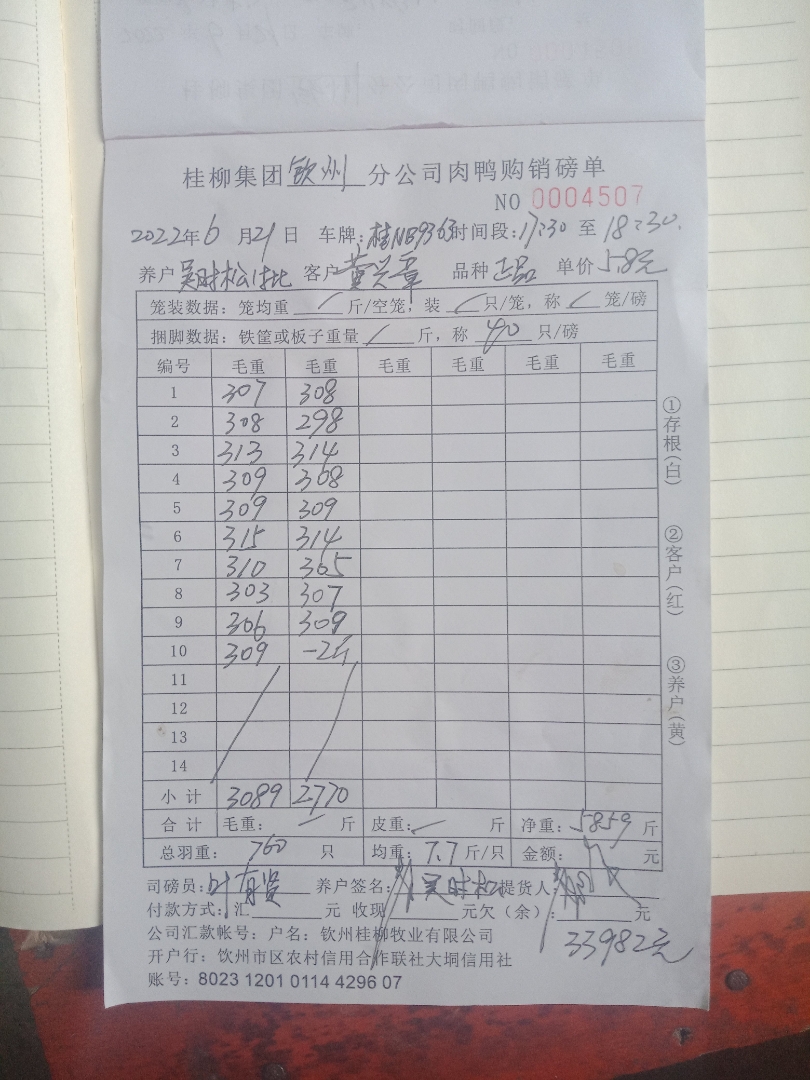 桂柳集团钦州分公司肉鸭购销磅单
NO 0004507
2022年6月21日 车牌:桂NB9363时间段:17:30 至 18:30.
养户 吴时松1批 客户 黄兴章 品种 正品 单价 5.8元
笼装数据:笼均重 / 斤/空笼,装 / 只/笼,称 / 笼/磅
捆脚数据:铁筐或板子重量 / 斤,称 40 只/磅
编号 毛重 毛重 毛重 毛重 毛重 毛重
1 307 308
2 308 298
3 313 314
4 309 308
5 309 309
6 315 314
7 310 305
8 303 307
9 306 309
10 309 -2斤
11
12
13
14
小计 3089 2770
合计 毛重: 斤 皮重: 斤 净重: 5859 斤
总羽重: 760 只 均重: 7.7 斤/只 金额: 元
司磅员: 叶有贤 养户签名: 吴时松 提货人:
付款方式:汇 元 收现 元欠(余): 元
33982元
公司汇款帐号:户名:钦州桂柳牧业有限公司
开户行:钦州市区农村信用合作联社大垌信用社
账号:8023 1201 0114 4296 07
①存根(白)
②客户(红)
③养户(黄)